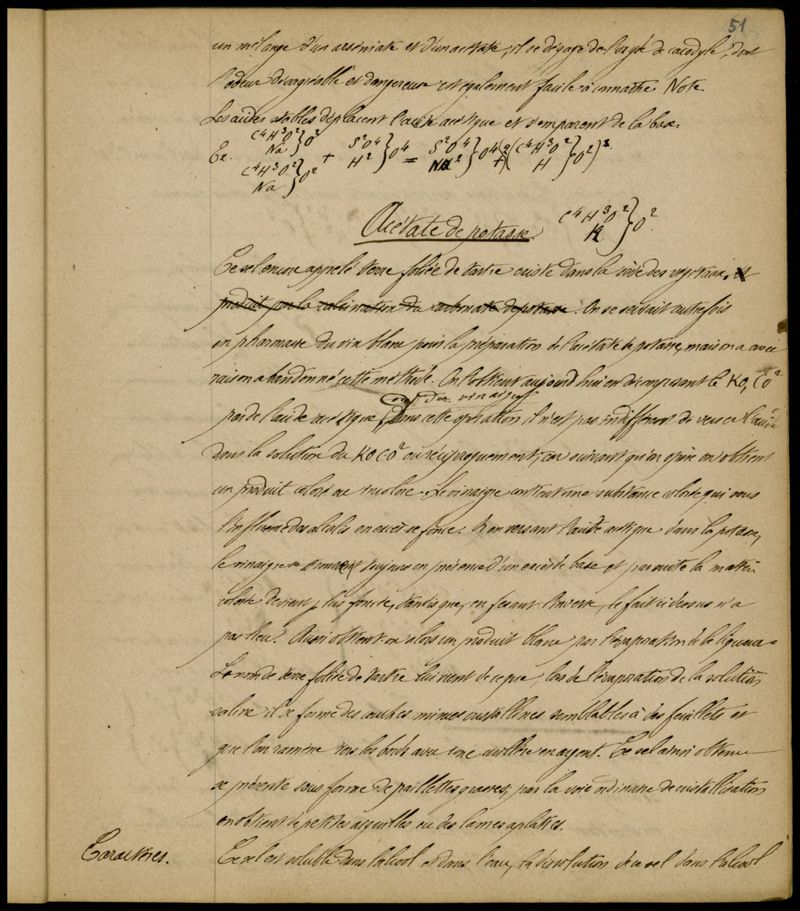 51
un mélange d'un arséniate et d'un acétate, il se dégage de l'oxyde de cacodyle, dont
l'odeur désagréable et dangereuse est également facile à connaître. Note.
Les acides stables déplacent l'acide acétique et s'emparent de la base.
Ex. C⁴H³O² Na } O² C⁴H³O² Na } O² + S²O⁴ H² } O⁴ = S²O⁴ Na² } O⁴ + (C⁴H³O² H } O²)²
Acétate de potasse. C⁴H³O² K } O².
Ce sel encore appelé terre foliée de tartre existe dans la sève des végétaux, et
produit par la calcination du carbonate de potasse. On se servait autrefois
en pharmacie du vin blanc pour la préparation de l'acétate de potasse, mais on a avec
raison abandonné cette méthode. On l'obtient aujourd'hui en décomposant le KO,CO²
ou du vinaigre
par de l'acide acétique, Dans cette opération il n'est pas indifférent de verser l'acide
dans la solution du KOCO² ou réciproquement; car suivant qu'on opère on obtient
un produit coloré ou incolore. Le vinaigre contient une substance colorée qui sous
l'influence des alcalis en excès se fonce. Si en versant l'acide acétique dans la potasse,
le vinaigre se trouve toujours en présence d'un excès de base et par suite la matière
colorée devient plus foncée, tandis que, en fesant l'inverse, le fait ci-dessus n'a
pas lieu. Aussi obtient-on alors un produit blanc par l'évaporation de la liqueur.
Le nom de terre foliée de tartre lui vient de ce que, lors de l'évaporation de la solution
saline il se forme des couches minces cristallines semblables à des feuillets et
que l'on ramène vers les bords avec une cuillère en argent. Ce sel ainsi obtenu
se présente sous forme de paillettes grasses; par la voie ordinaire de cristallisation
on obtient de petites aiguilles ou des lames aplaties.
Caractères. Ce sel est soluble dans l'alcool et dans l'eau, la dissolution de ce sel dans l'alcool